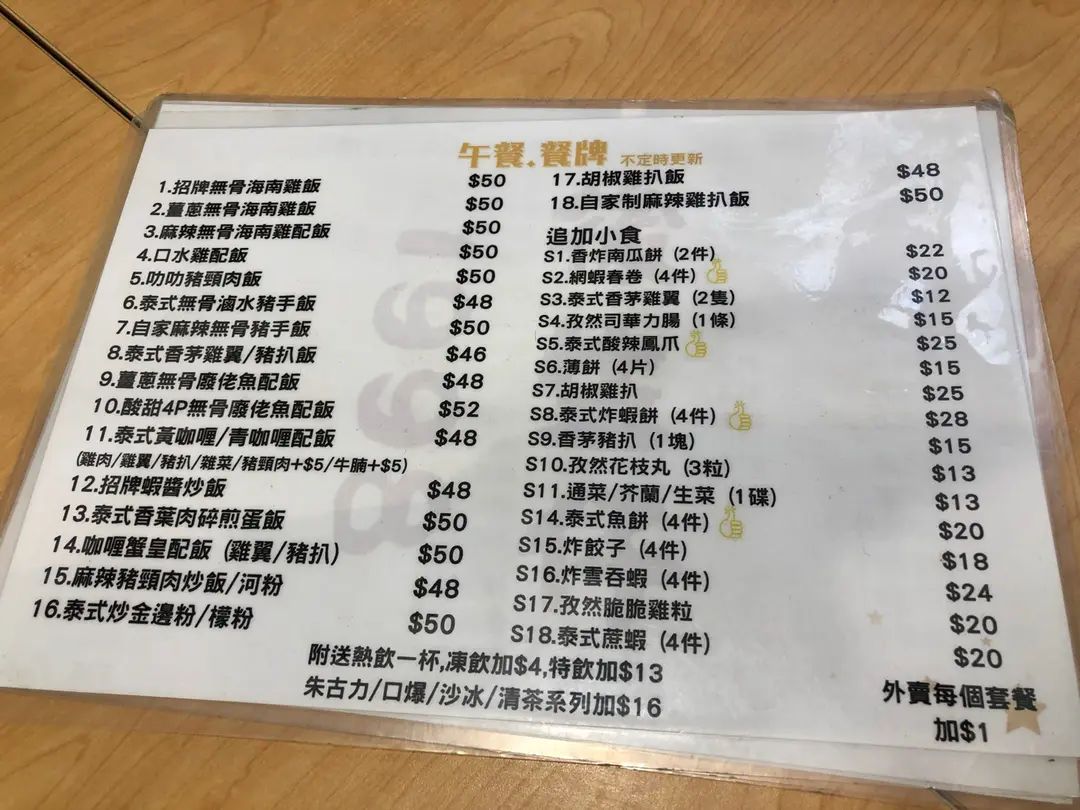 午餐.餐牌 不定時更新
1.招牌無骨海南雞飯 $50
2.薑蔥無骨海南雞飯 $50
3.麻辣無骨海南雞配飯 $50
4.口水雞配飯 $50
5.叻叻豬頸肉飯 $50
6.泰式無骨滷水豬手飯 $48
7.自家麻辣無骨豬手飯 $50
8.泰式香茅雞翼/豬扒飯 $46
9.薑蔥無骨廢佬魚配飯 $48
10.酸甜4P無骨廢佬魚配飯 $52
11.泰式黃咖喱/青咖喱配飯 $48
(雞肉/雞翼/豬扒/雜菜/豬頸肉+$5/牛腩+$5)
12.招牌蝦醬炒飯 $48
13.泰式香葉肉碎煎蛋飯 $50
14.咖喱蟹皇配飯 (雞翼/豬扒) $50
15.麻辣豬頸肉炒飯/河粉 $48
16.泰式炒金邊粉/檬粉 $50
17.胡椒雞扒飯 $48
18.自家制麻辣雞扒飯 $50
追加小食
S1.香炸南瓜餅 (2件) $22
S2.網蝦春卷 (4件) $20
S3.泰式香茅雞翼 (2隻) $12
S4.孜然司華力腸 (1條) $15
S5.泰式酸辣鳳爪 $25
S6.薄餅 (4片) $15
S7.胡椒雞扒 $25
S8.泰式炸蝦餅 (4件) $28
S9.香茅豬扒 (1塊) $15
S10.孜然花枝丸 (3粒) $13
S11.通菜/芥蘭/生菜 (1碟) $13
S14.泰式魚餅 (4件) $20
S15.炸餃子 (4件) $18
S16.炸雲吞蝦 (4件) $24
S17.孜然脆脆雞粒 $20
S18.泰式蔗蝦 (4件) $20
附送熱飲一杯,凍飲加$4,特飲加$13
朱古力/口爆/沙冰/清茶系列加$16
外賣每個套餐
加$1